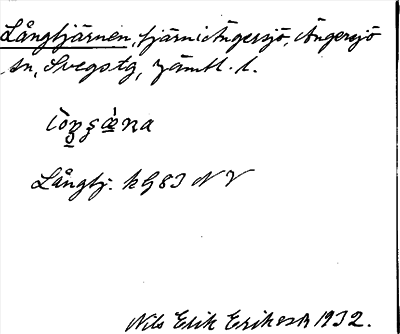 Långtjärnen, tjärn i Ängersjö, Ängersjö
sn, Svegs tg, Jämtl. l.
Långtj. kG83 NV
Nils Erik Eriksson 1932.